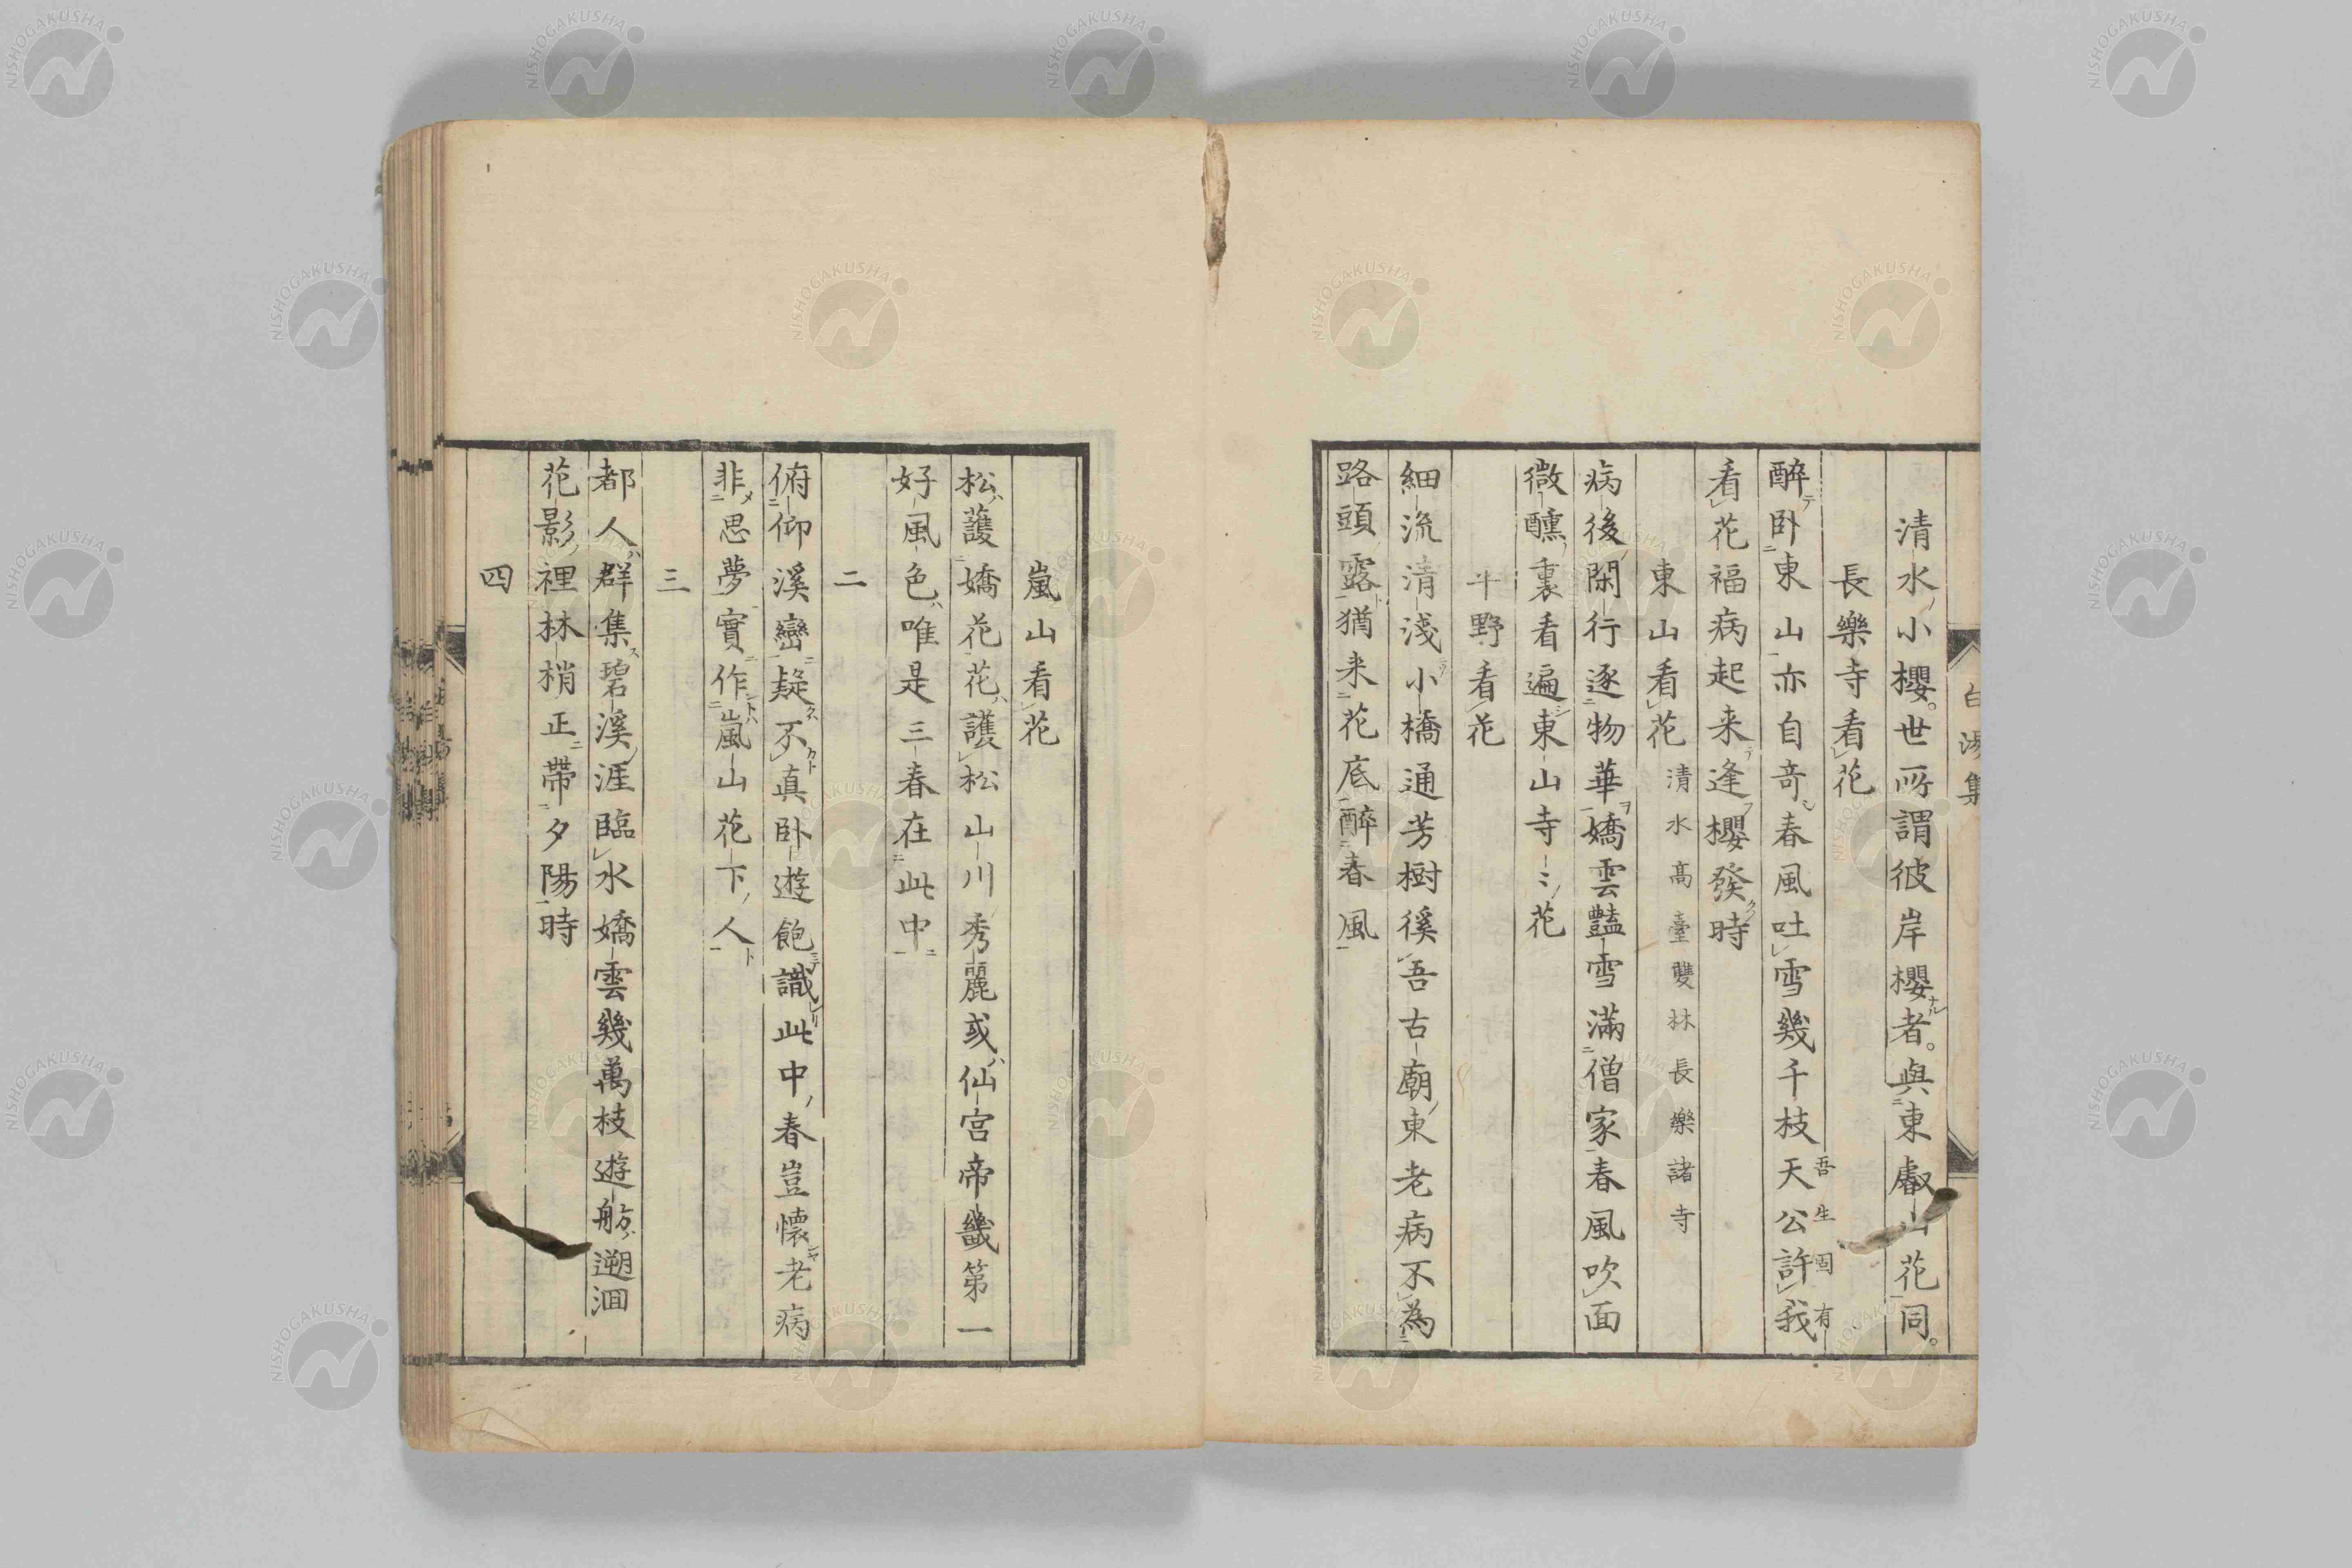 清水小櫻。世所謂彼岸櫻者。與東叡山花同。
長樂寺看花
醉臥東山亦自奇春風吐雪幾千枝天公許我
吾生固有
看花福病起来逢櫻發時
東山看花 清水高臺雙林長樂諸寺
病後閑行逐物華嬌雲豔雪滿僧家春風吹面
微醺裏看遍東山寺〻花
平野看花
細流清淺小橋通芳樹徯吾古廟東老病不為
路頭露猶来花底醉春風
嵐山看花
松護嬌花花護松山川秀麗或仙宮帝畿第一
好風色唯是三春在此中
二
俯仰溪巒疑不真臥遊飽識此中春豈懷老病
非思夢實作嵐山花下人
三
都人群集碧溪涯臨水嬌雲幾萬枝遊舫遡洄
花影裡林梢正帶夕陽時
四
NISHOGAKUSHA